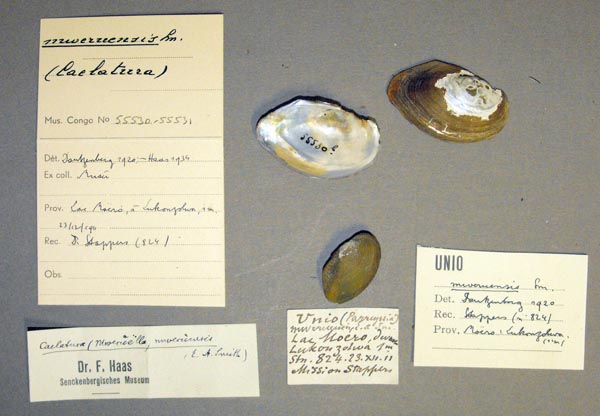 mweruensis Sm.
(Caelatura)
Mus. Congo No 55530-55531
Dét. Dautzenberg 1920;- Haas 1934
Ex coll. Musée
Prov. Lac Moero, à Lukonzolwa, 1 m.
23/12/1911
Rec. Dr Stappers (824)
Obs.
55530
UNIO
mweruensis Sm.
Det. Dautzenberg 1920
Rec. Stappers (n° 824)
Prov. Moero: Lukonzolwa
(1m)
Unio (Parreysia)
mweruensis
Lac Moero,
Lukonzolwa 1m
Stn. 824. 23.XII.11
Mission Stappers
Caelatura (                ) mweruensis
(E. A. Smith)
Dr. F. Haas
Senckenbergisches Museum